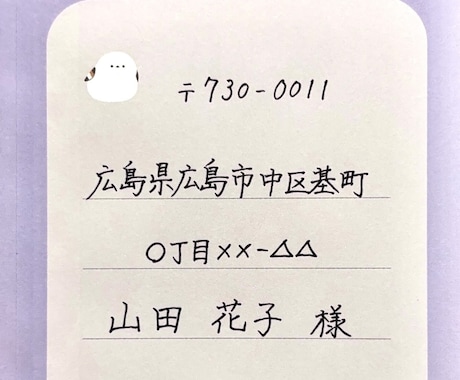 〒730-0011
広島県広島市中区基町
〇丁目××-△△
山田 花子 様